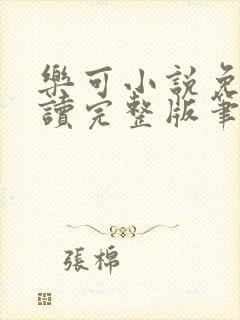 樂可小説免
讀完整版筆
張棉